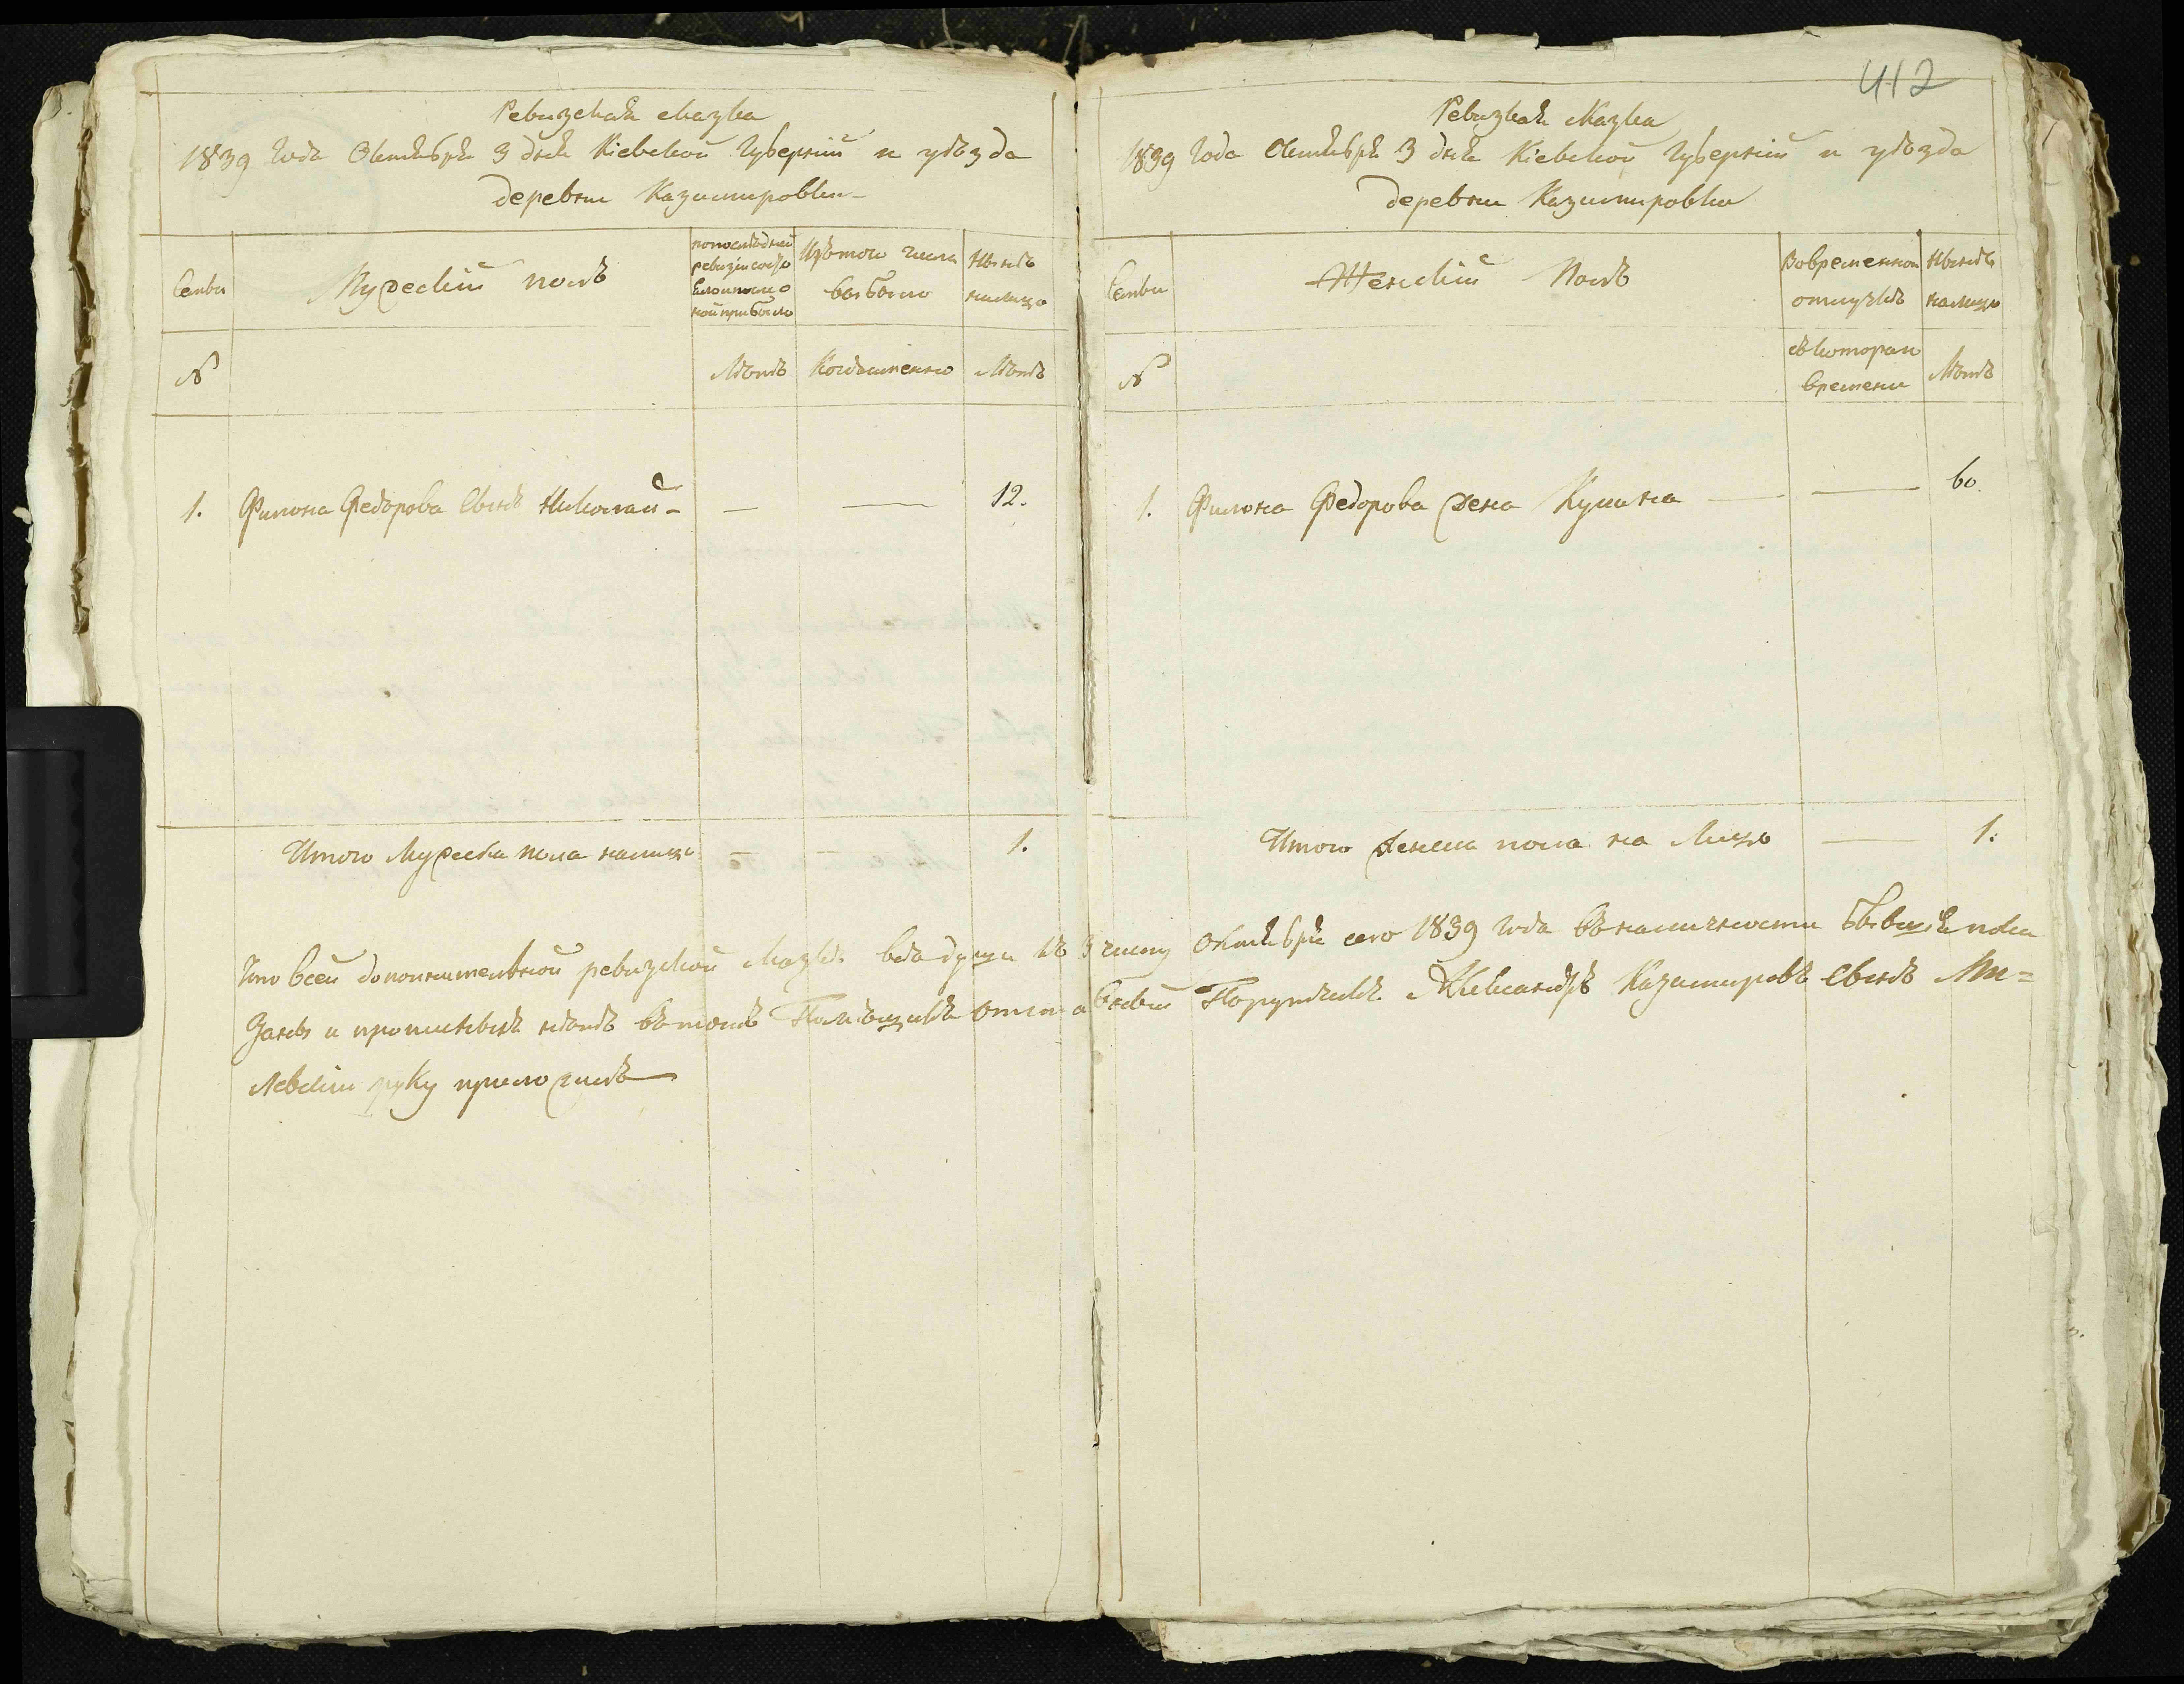 Ревизская сказка
1839 года Октября 3 дня Кіевской Губерніи и уѣзда
деревни Казимировки
Семьи
Мужескій полъ
по последней ревизіи состояло и после оной прибыло
Изъ того числа выбыло
Нынѣ налицо
№
Лѣтъ
Когда именно
Лѣтъ
1. Филона Федорова Сынъ Николай — — — 12.
Итого Мужеска пола налицо — — 1.
412
Ревизкая Сказка
1839 года Октября 3 дня Кіевской Губерніи и уѣзда
деревни Казимировки
Семьи
Женскій Полъ
Во временной отлучкѣ
Нынѣ налицо
№
съ котораго времени
Лѣтъ
1. Филона Федорова жена Кулина — — 60.
Итого женска пола на Лицо — 1.
Что всей дополнительной ревизской Сказкѣ всѣ души къ 3 числу Октября сего 1839 года въ наличности бывшія пока
заны и прописныхъ нѣтъ въ томъ Помѣщикъ отставный Порутчикъ Александръ Казимировъ Сынъ
руку приложилъ